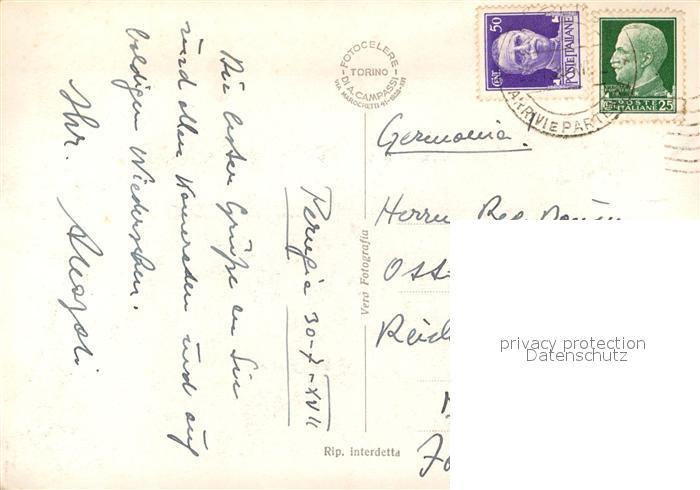 Die besten Grüße an Sie
und allen Kameraden und auf
baldigen Wiedersehen.
Ihr.
Perugia 30-7-XVII
FOTOCELERE
TORINO
DI A. CAMPASSI
Vera Fotografia
Rip. interdetta
50
CENT
POSTE ITALIANE
POSTE
ITALIANE
25
ARRIVI E PARTE
Germania.
Herrn Reg.
privacy protection
Datenschutz